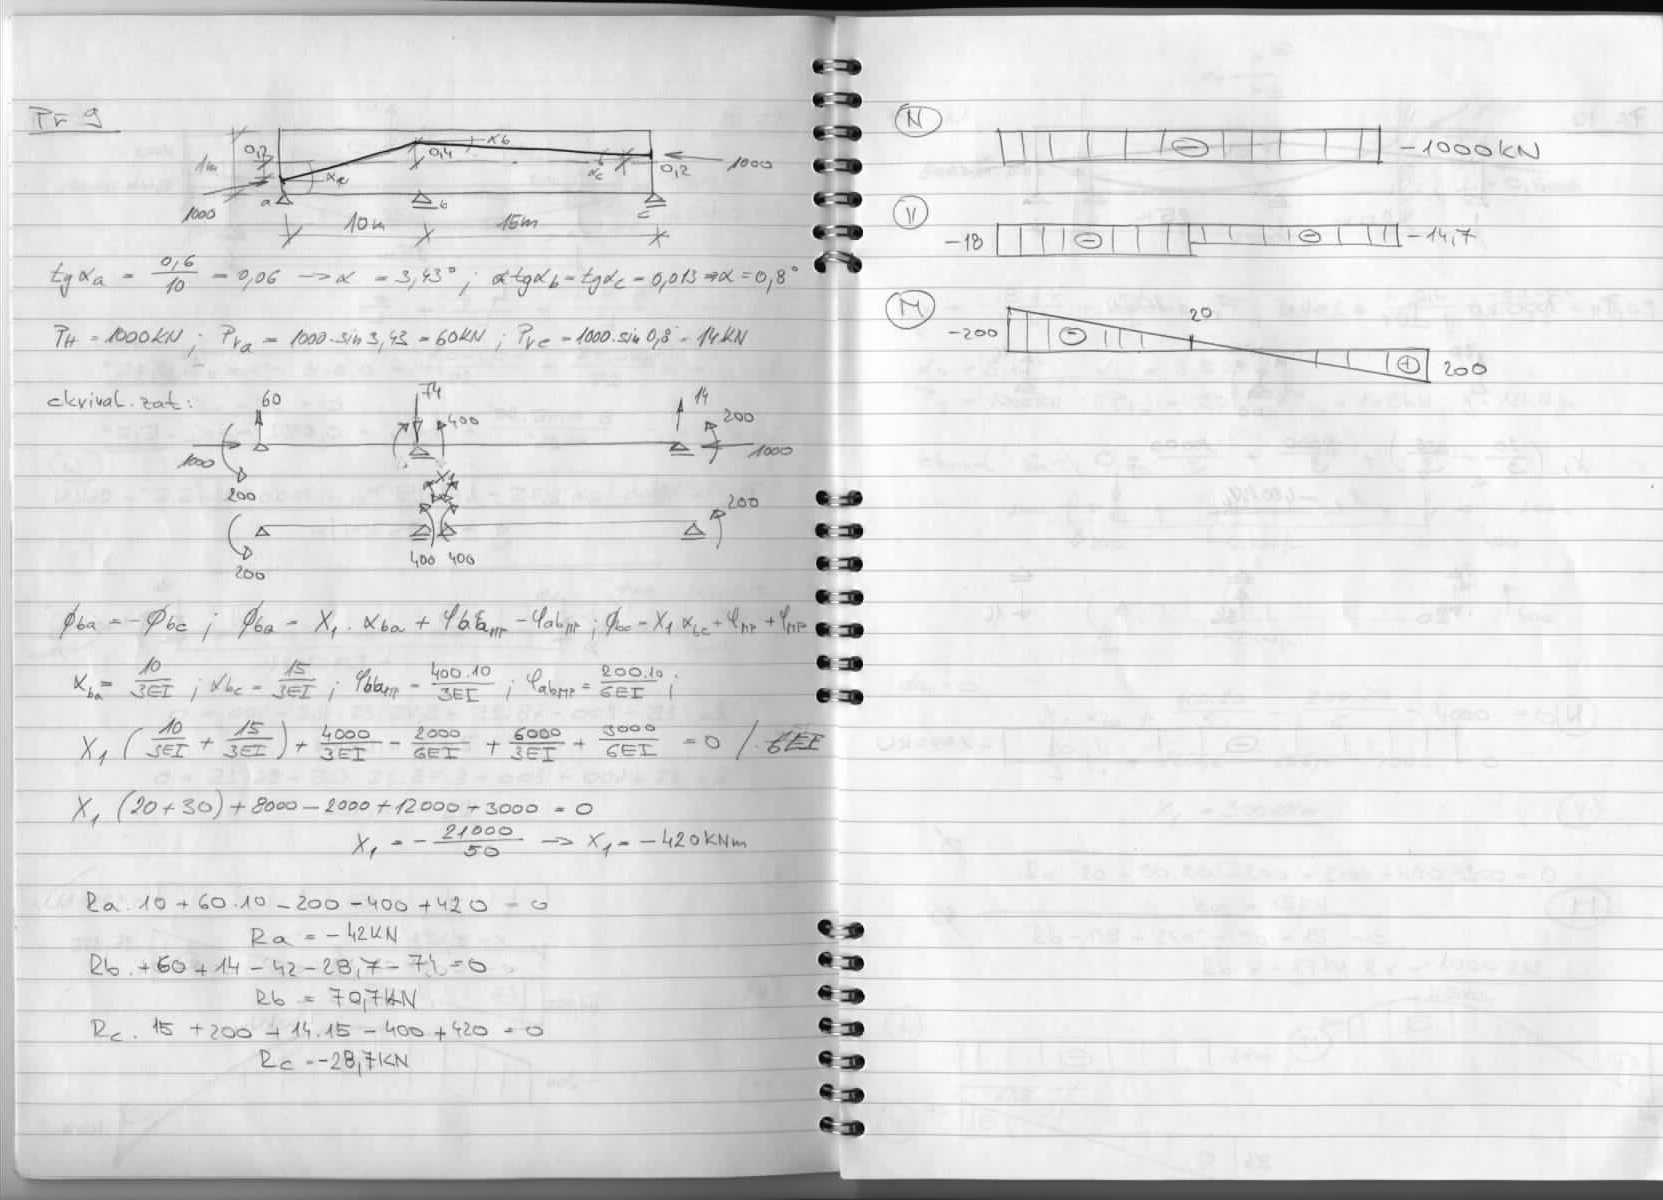 Př 9
1m 0,2 αa 0,4 αb αc 0,2 1000
1000 a b c
10m 15m
tgαa = 0,6/10 = 0,06 → α = 3,43° ; αtgαb = tgαc = 0,013 ⇒ α = 0,8°
PH = 1000KN ; Pva = 1000·sin3,43 = 60KN ; Pvc = 1000·sin0,8 = 14KN
ekvival. zat:
60 74 400 14 200
1000 1000
200
X1 200
400 400
200
ϕba = -ϕbc ; ϕba = X1 · αba + φbaMP - φabMP ; ϕbc = X1 αbc + φMP + φMP
αba = 10/3EI ; αbc = 15/3EI ; φbaMP = 400·10/3EI ; φabMP = 200·10/6EI ;
X1 (10/3EI + 15/3EI) + 4000/3EI - 2000/6EI + 6000/3EI + 3000/6EI = 0 /·6EI
X1 (20+30) + 8000 - 2000 + 12000 + 3000 = 0
X1 = - 21000/50 → X1 = -420KNm
Ra·10 + 60·10 - 200 - 400 + 420 = 0
Ra = -42KN
Rb + 60 + 14 - 42 - 28,7 - 74 = 0
Rb = 70,7KN
Rc · 15 + 200 + 14·15 - 400 + 420 = 0
Rc = -28,7KN
N
-1000KN
V
-18 -14,7
M
-200 20
200